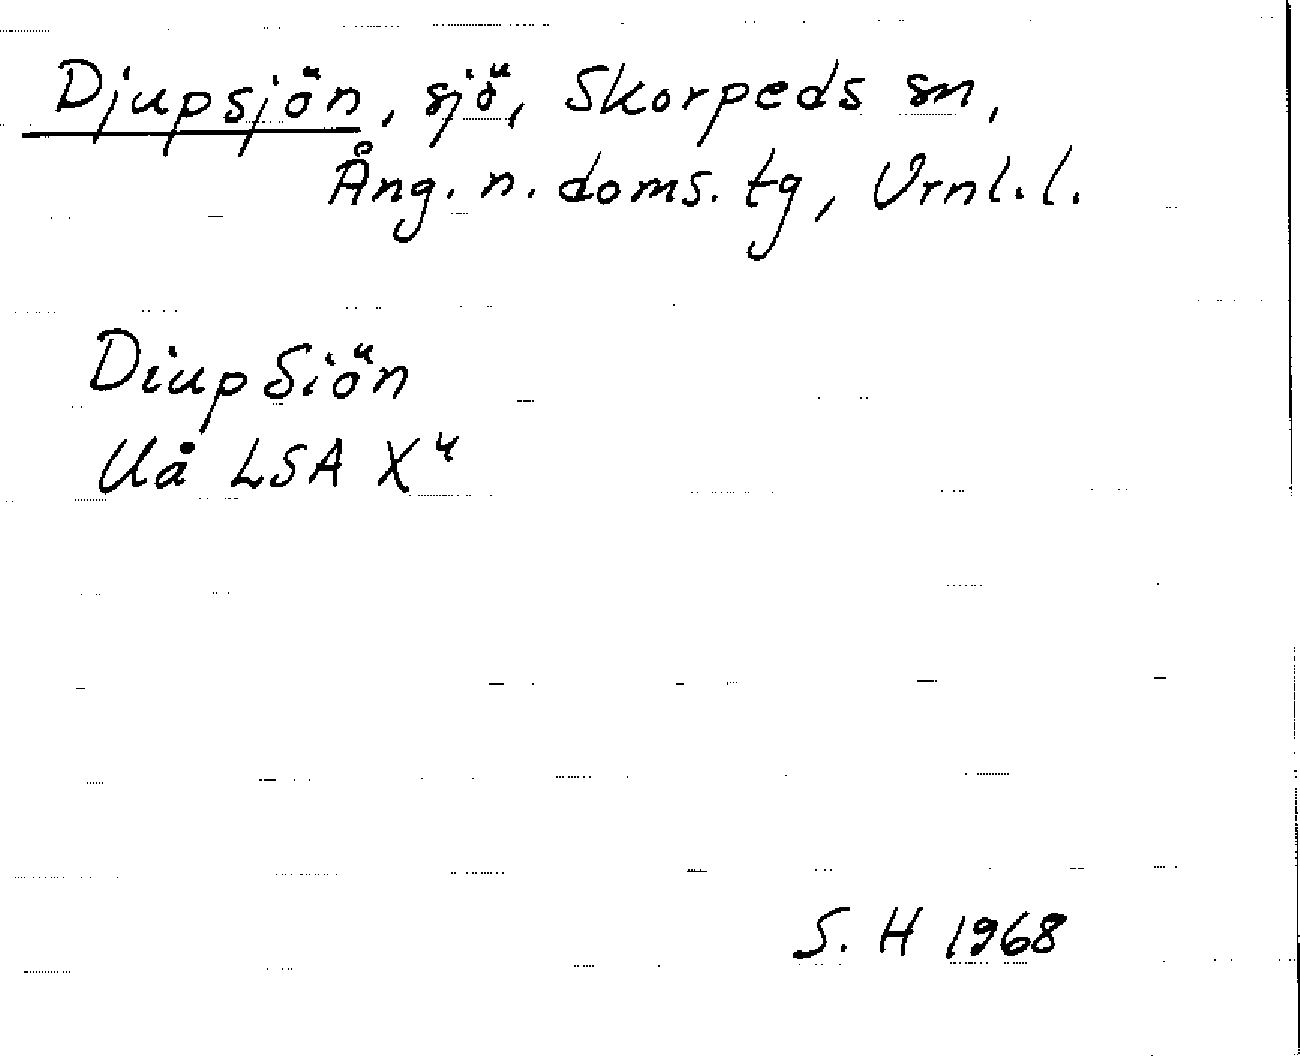 Djupsjön, sjö, Skorpeds sn,
Ång. n. doms. tg, Vrnl. l.
Diup Siön
Uå LSA X⁴
S. H 1968